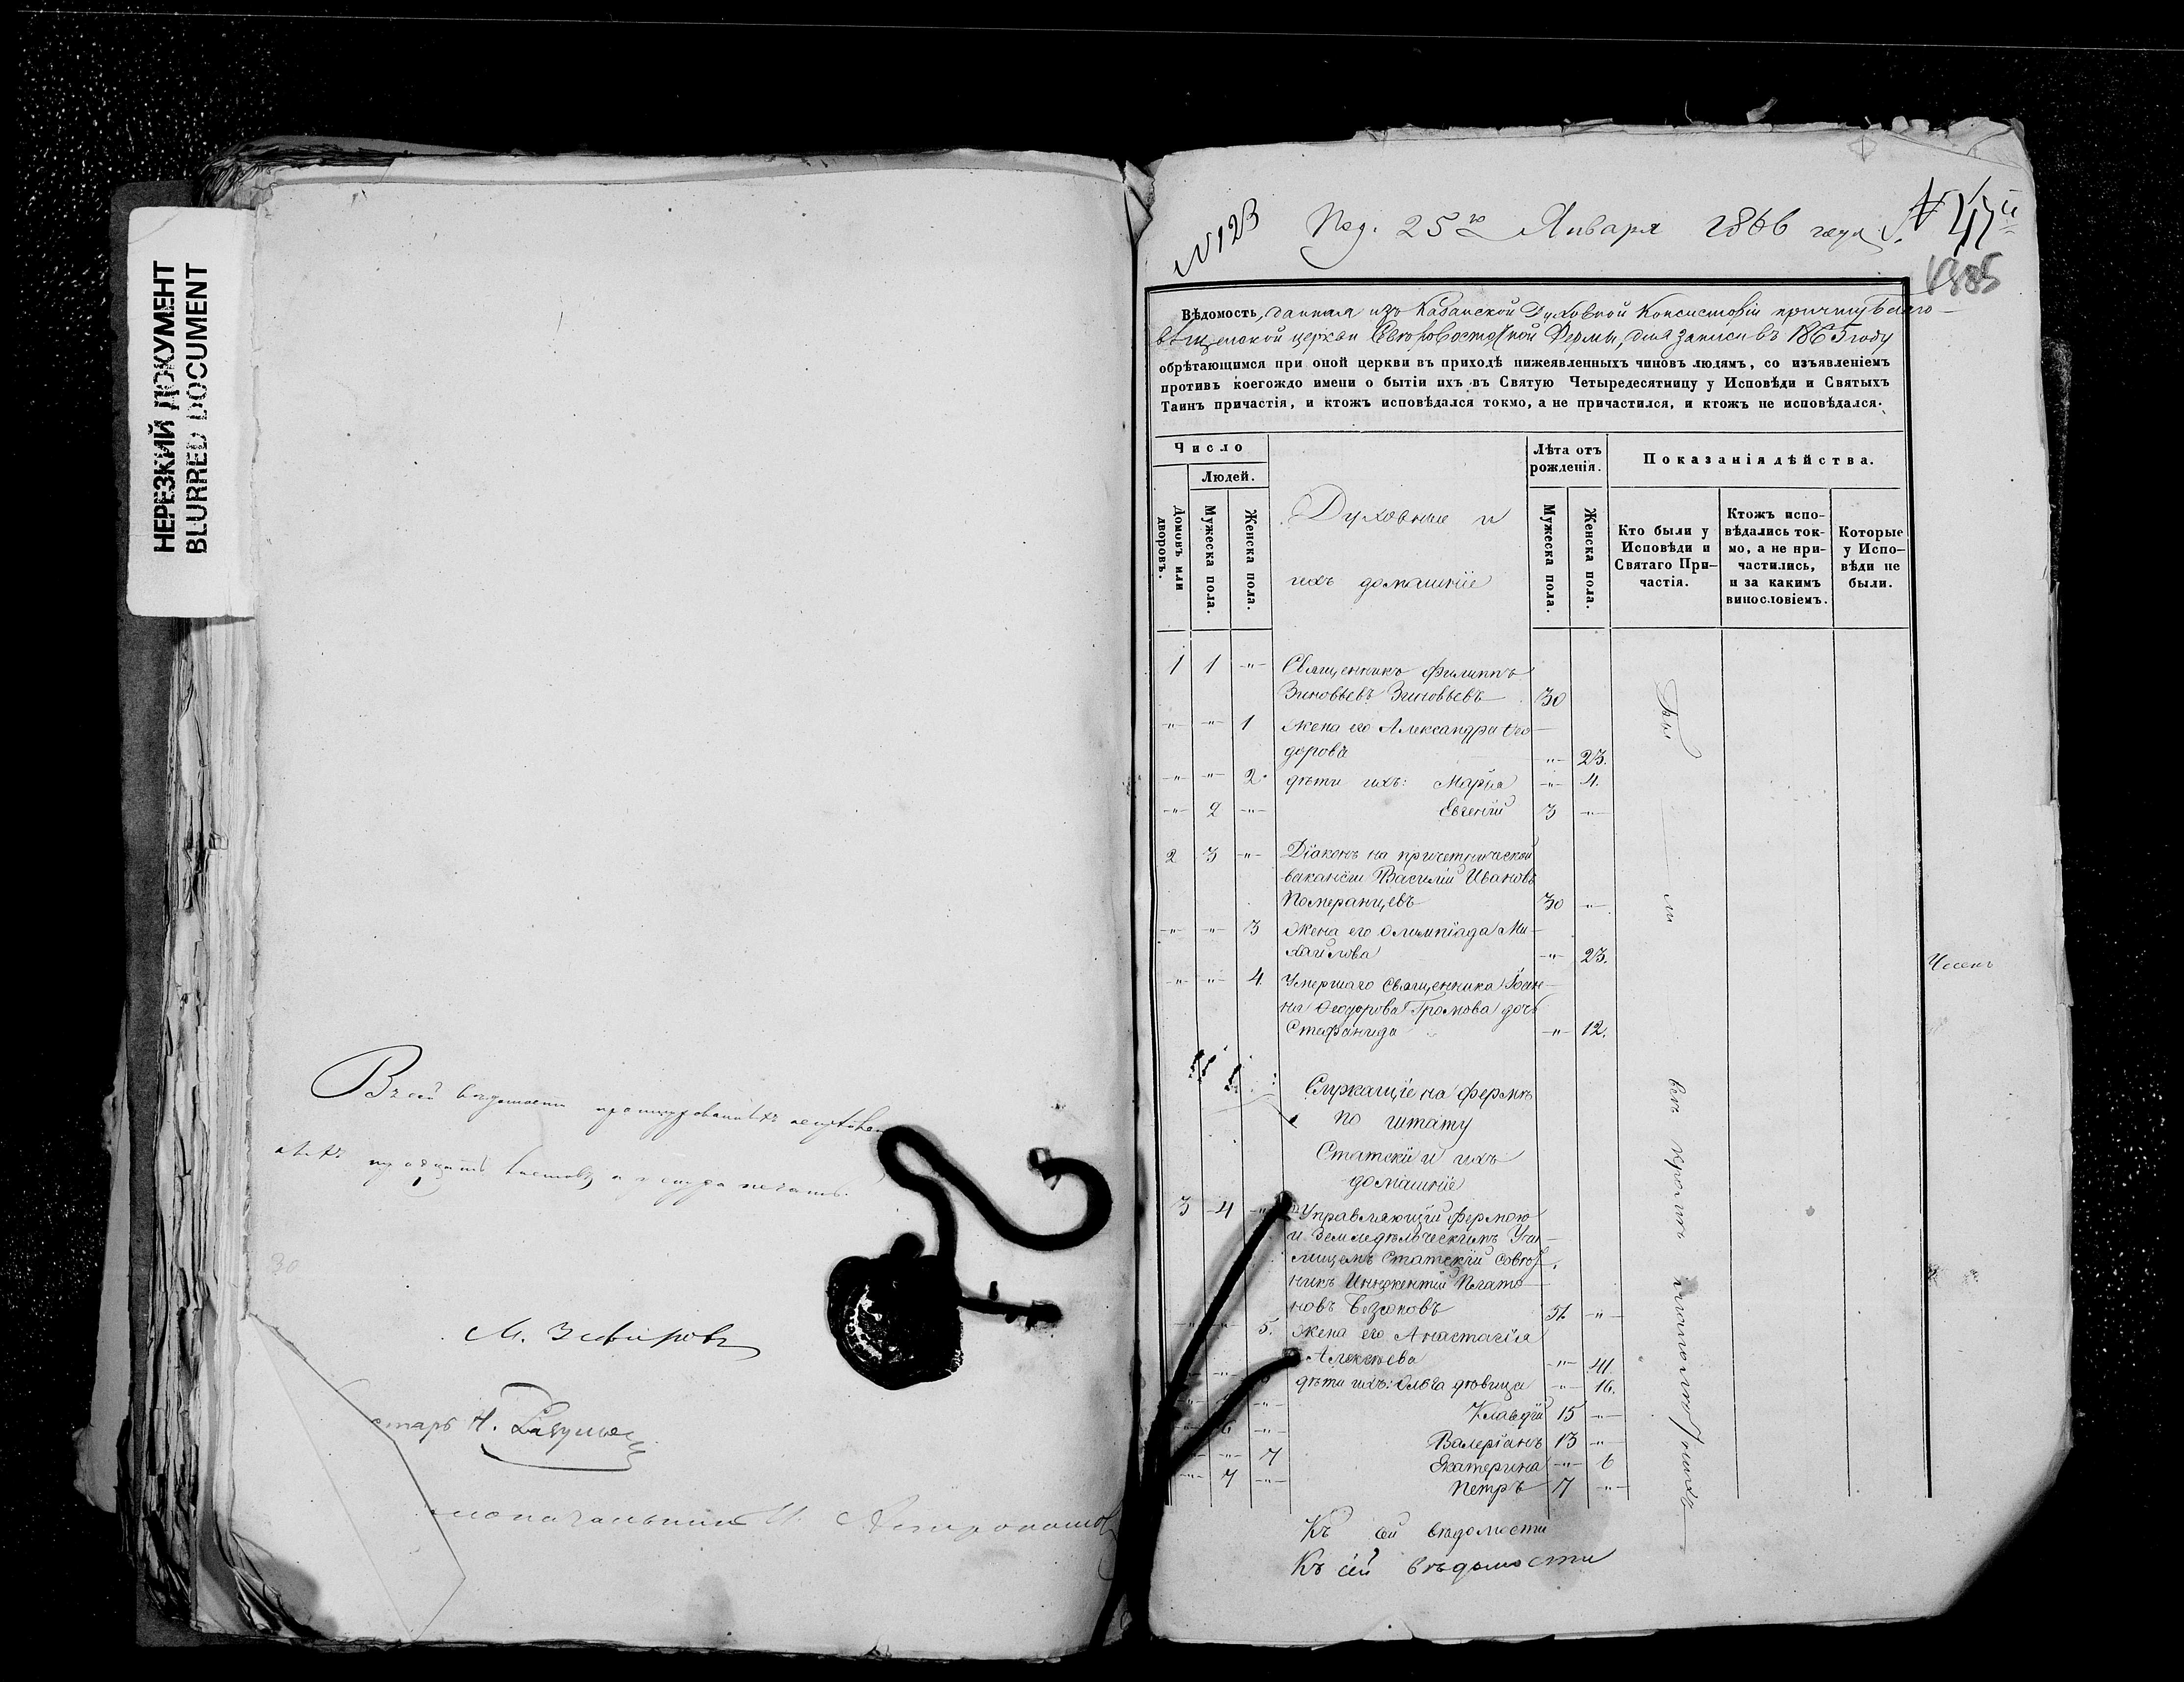 НЕРЕЗКИЙ ДОКУМЕНТ
BLURRED DOCUMENT
Въ сей ведомости
листовъ печать.
М. Зефировъ
№ 123
Под. 25го Января 1866 года.
1885
Вѣдомость, данная изъ Казанской Духовной Консисторіи причту Благо-
вѣщенской церкви Сѣверовосточной Фермы, для записи въ 1865 году
обрѣтающимся при оной церкви въ приходѣ нижеявленныхъ чиновъ людямъ, со изъявленіемъ
противъ коегождо имени о бытіи ихъ въ Святую Четыредесятницу у Исповѣди и Святыхъ
Таинъ причастія, и ктожъ исповѣдался токмо, а не причастился, и ктожъ не исповѣдался.
Число
Людей.
Домовъ или дворовъ.
Мужеска пола.
Женска пола.
Духовные и
ихъ домашніе
Лѣта отъ рожденія.
Мужеска пола.
Женска пола.
Показанія дѣйства.
Кто были у Исповѣди и Святаго При-частія.
Ктожъ испо-вѣдались ток-мо, а не при-частились, и за какимъ винословіемъ.
Которые у Испо-вѣди не были.
1 1 -"- Священникъ Филиппъ
Зиновьевъ Зиновьевъ 30
-"- -"- 1 жена его Александра Ѳео-
дорова -"- 23.
-"- -"- 2 дѣти ихъ: Марія -"- 4.
-"- 2 -"- Евгеній 3 -"-
2 3 -"- Діаконъ на причетнической
вакансіи Василій Ивановъ
Померанцевъ 30 -"-
-"- -"- 3 жена его Олимпіада Ми-
хайлова -"- 23.
-"- -"- 4. Умершаго Священника Іоан-
на Ѳеодорова Громова дочь
Стефанида -"- 12.
Служащіе на фермѣ
по штату
Статскіи и ихъ
домашніе
3 4 -"- Управляющій фермою
и Земледѣльческимъ Учи-
лищемъ Статскій Совѣт-
никъ Иннокентій Плато-
новъ Безсоновъ 51. -"-
-"- -"- 5. жена его Анастасія
Алексѣева -"- 41.
дѣти ихъ: Ольга дѣвица -"- 16.
Клавдій 15 -"-
6 -"- Валеріанъ 13 -"-
-"- 7 Екатерина -"- 6
-"- 7 -"- Петръ 7 -"-
Бы ли
всѣ кромѣ
Къ сей вѣдомости
Къ сей вѣдомости